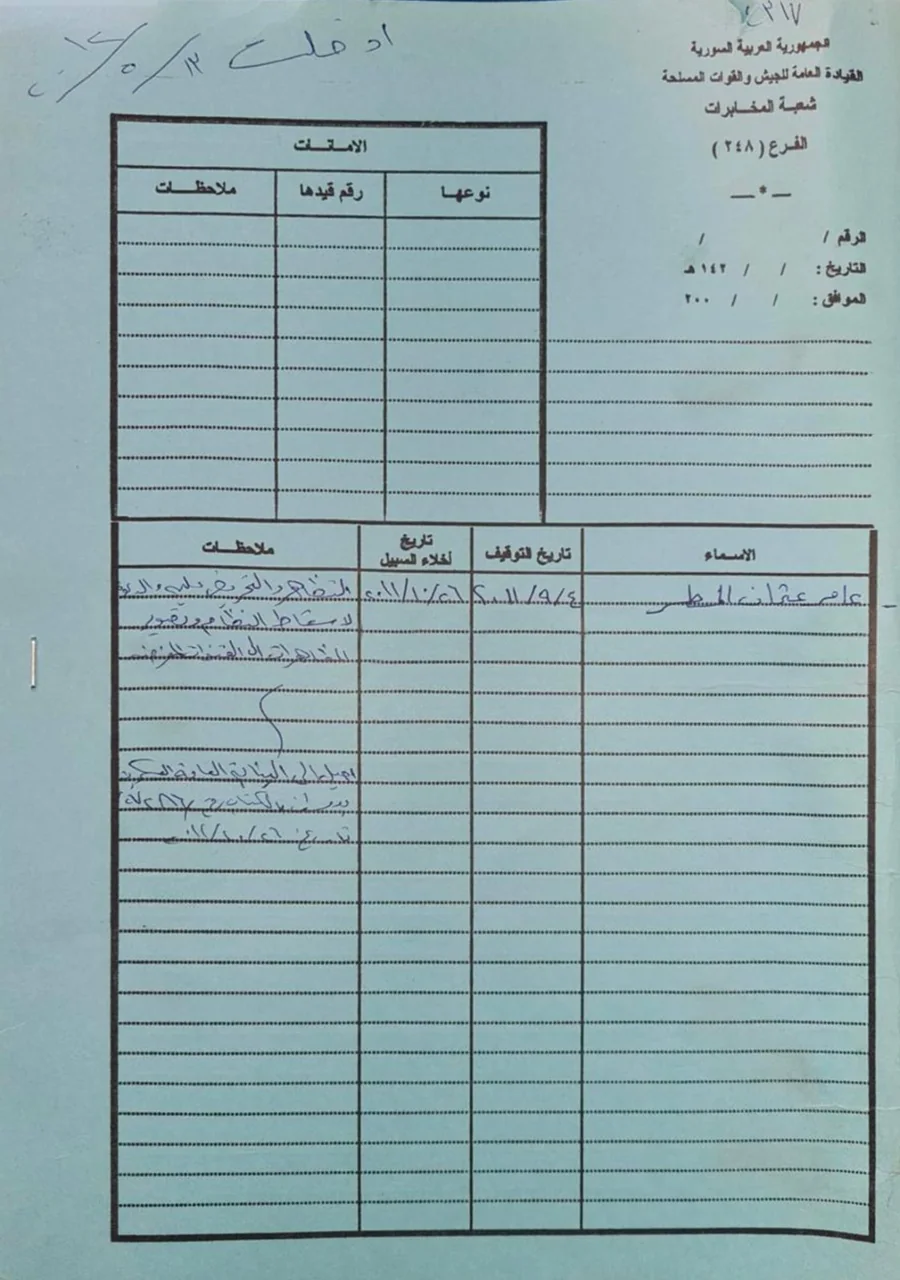 ٤٣١٧
ادخلت
الجمهورية العربية السورية
القيادة العامة للجيش والقوات المسلحة
شعبة المخابرات
الفرع ( ٢٤٨ )
— * —
الرقم / /
التاريخ : / / ١٤٢ هـ
الموافق : / / ٢٠٠
الامانات
نوعها رقم قيدها ملاحظات
الاسماء تاريخ التوقيف تاريخ أخلاء السبيل ملاحظات
عامر عثمان المطر ٢٠١١/٩/٤ ٢٠١١/١٠/٢٦ التظاهر والتحريض عليه
لاسقاط النظام وتصوير
المظاهرات الى القنوات المغرضة
احيل الى النيابة العامة العسكرية
بدمشق بالكتاب رقم
تاريخ ٢٠١١/١٠/٢٦